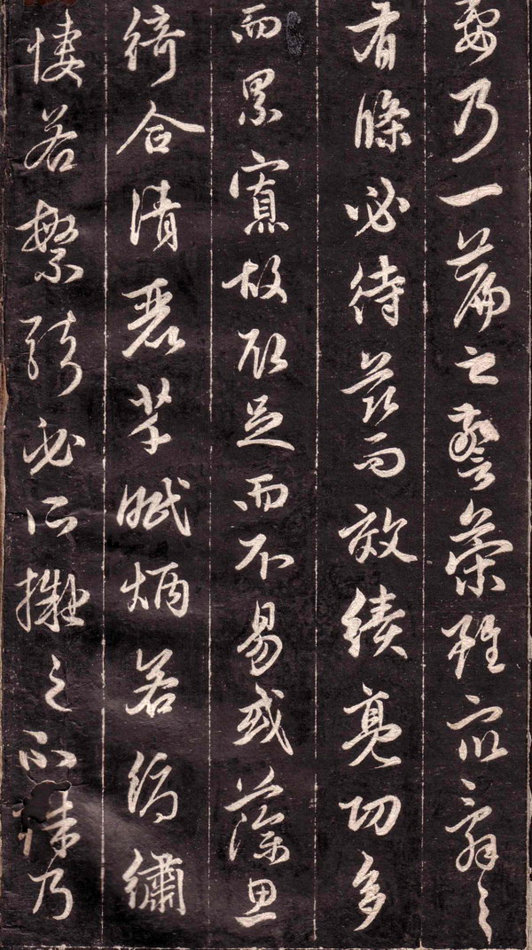 要乃一篇之警策雖衆辭之
有條必待茲而效績亮功多
而累寡故取足而不易或藻思
綺合清麗芊眠炳若縟繡
悽若繁絃必所擬之不殊乃